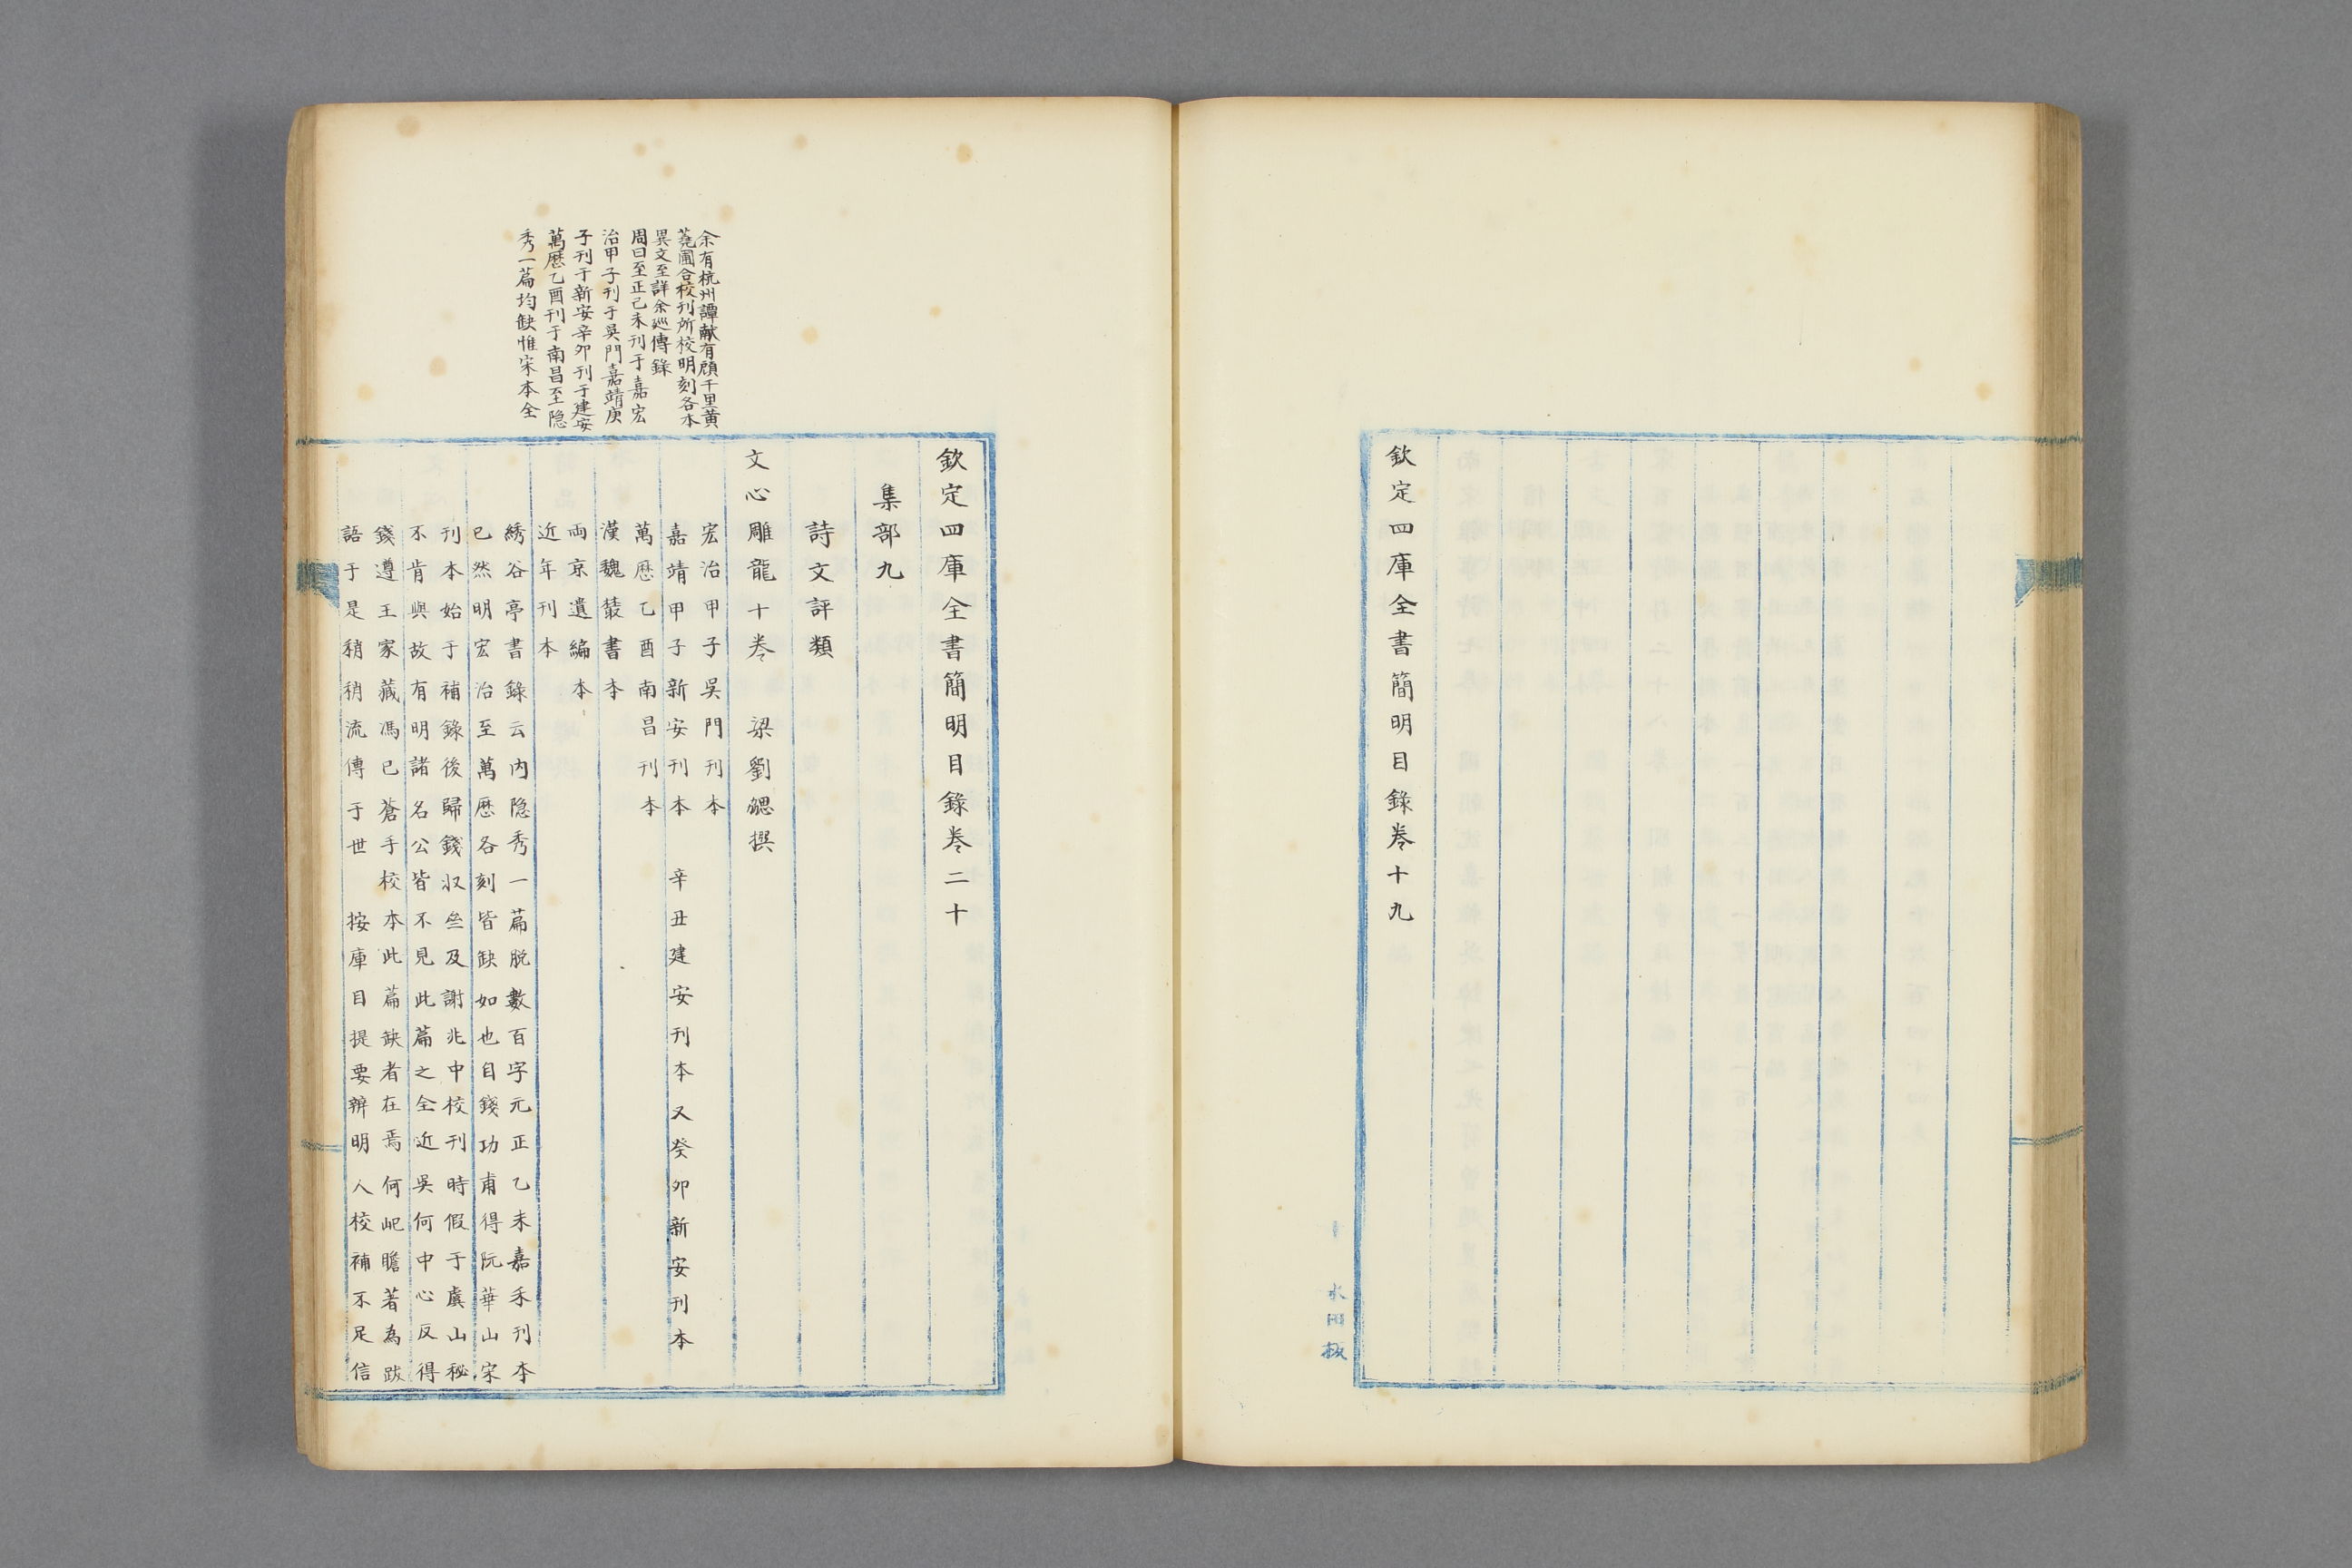 欽定四庫全書簡明目錄卷十九
永阳板
欽定四庫全書簡明目錄卷二十
集部九
詩文評類
文心雕龍十卷　梁劉勰撰
宏治甲子吳門刊本
嘉靖甲子新安刊本　辛丑建安刊本　又癸卯新安刊本
萬歷乙酉南昌刊本
漢魏叢書本
両京遺編本
近年刊本
綉谷亭書錄云內隐秀一篇脱數百字元正乙未嘉禾刊本
已然明宏治至萬歷各刻皆缺如也自錢功甫得阮華山宋
刊本始于補錄後歸錢收㕘及謝兆中校刊時假于虞山秘
不肯與故有明諸名公皆不見此篇之全近吳何中心反得
錢遵王家藏馮已蒼手校本此篇缺者在焉何屺瞻著為跋
語于是稍稍流傳于世　按庫目提要辨明人校補不足信
余有杭州譚献有顧千里黃
蕘圃合校刊所校明刻各本
異文至詳余廵傳錄
周曰至正己未刊于嘉宏
治甲子刊于吳門嘉靖庚
子刊于新安辛卯刊于建安
萬歷乙酉刊于南昌至隐
秀一篇均缺惟宋本全